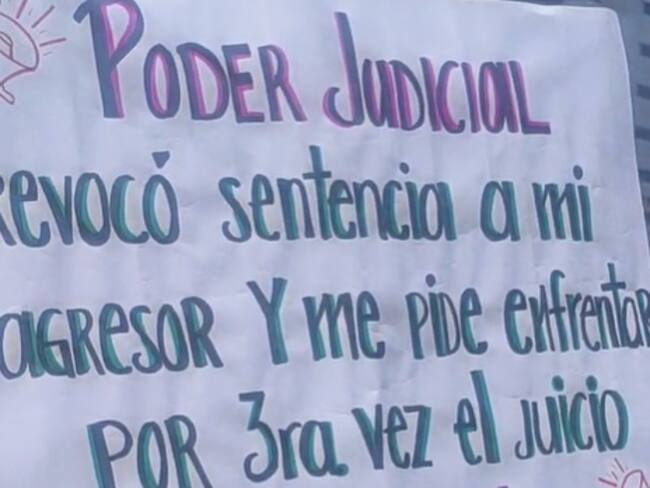 PODER JUDICIAL
revocó sentencia a mi
agresor Y me pide enfrentar
POR 3ra vez el juicio